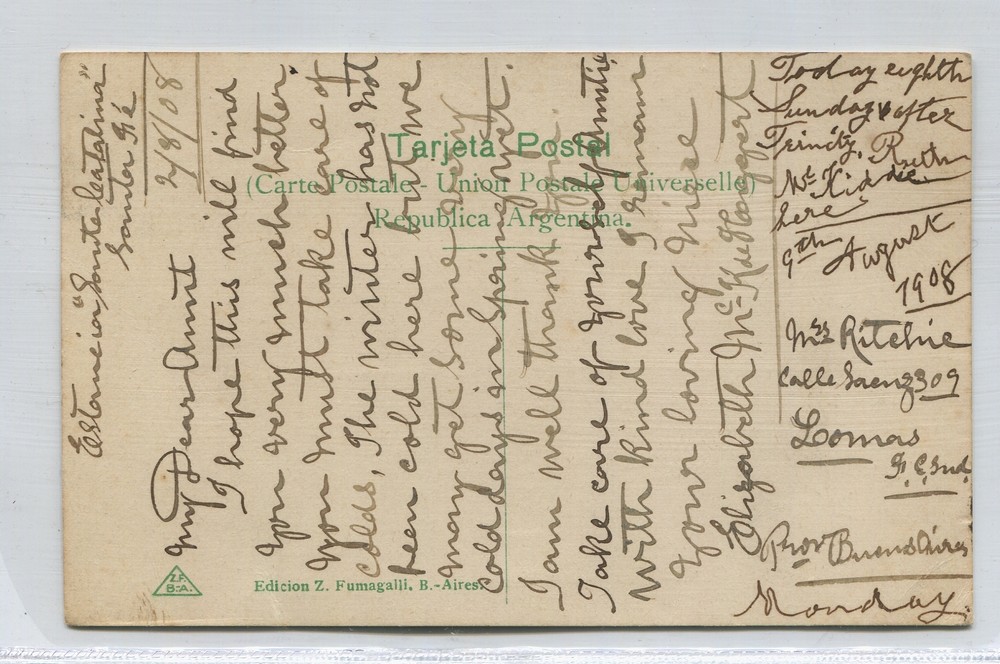 Tarjeta Postal
(Carte Postale - Union Postale Universelle)
Republica Argentina.
Z.F.
B.-A.
Edicion Z. Fumagalli. B.-Aires.
Estancia "Santa Catalina"
Santa Fé
2/8/08
My Dear Aunt
I hope this will find
you very much better.
You must take care of
colds, The winter has not
been cold here but we
may get some very
cold days in Spring yet.
I am well thank you.
Take care of yourself Auntie
With kind love I remain
Your loving Niece
Elizabeth Mc
Today eighth
Sunday after
Trinity. Ruth
Mc Kiddie
here
9th August
1908
Mrs Ritchie
Calle Saenz 309
Lomas
F. C. Sud
Prov Buenos Aires
Monday